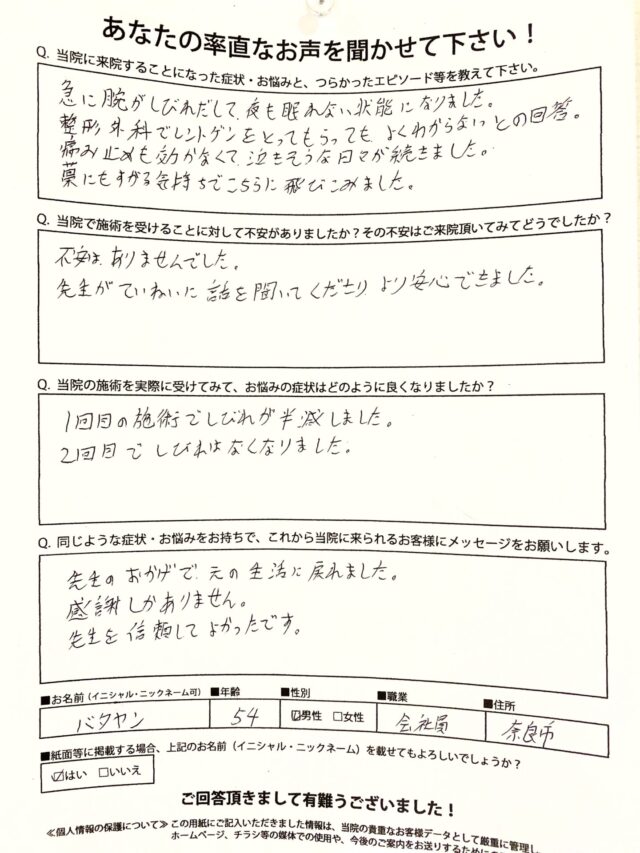 あなたの率直なお声を聞かせて下さい！
Q. 当院に来院することになった症状・お悩みと、つらかったエピソード等を教えて下さい。
急に腕がしびれだして、夜も眠れない状態になりました。
整形外科でレントゲンをとってもらっても、よくわからないとの回答。
痛み止めも効かなくて、泣きそうな日々が続きました。
藁にもすがる気持ちでこちらに飛びこみました。
Q. 当院で施術を受けることに対して不安がありましたか？その不安はご来院頂いてみてどうでしたか？
不安は、ありませんでした。
先生がていねいに話を聞いてくださり、より安心できました。
Q. 当院の施術を実際に受けてみて、お悩みの症状はどのように良くなりましたか？
1回目の施術でしびれが半減しました。
2回目でしびれはなくなりました。
Q. 同じような症状・お悩みをお持ちで、これから当院に来られるお客様にメッセージをお願いします。
先生のおかげで、元の生活に戻れました。
感謝しかありません。
先生を信頼してよかったです。
■お名前（イニシャル・ニックネーム可） ■年齢 ■性別 ■職業 ■住所
バタヤン 54 ☑男性 □女性 会社員 奈良市
■紙面等に掲載する場合、上記のお名前（イニシャル・ニックネーム）を載せてもよろしいでしょうか？
☑はい □いいえ
ご回答頂きまして有難うございました！
≪個人情報の保護について≫この用紙にご記入いただきました情報は、当院の貴重なお客様データとして厳重に管理し、
ホームページ、チラシ等の媒体での使用や、今後のご案内をお送りするために